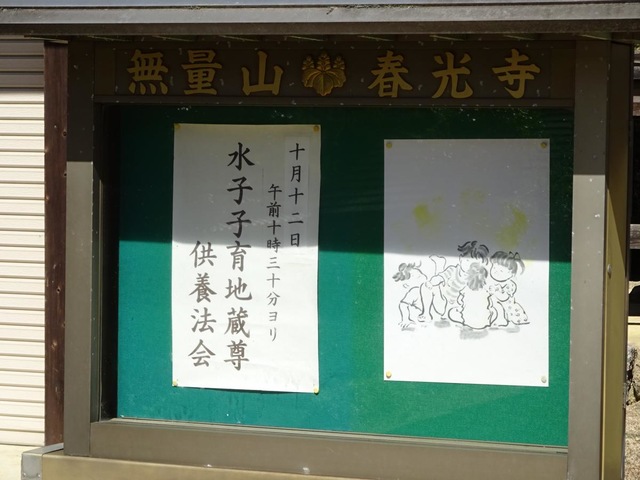 無量山 春光寺
十月十二日
午前十時三十分ヨリ
水子子育地蔵尊
供養法会